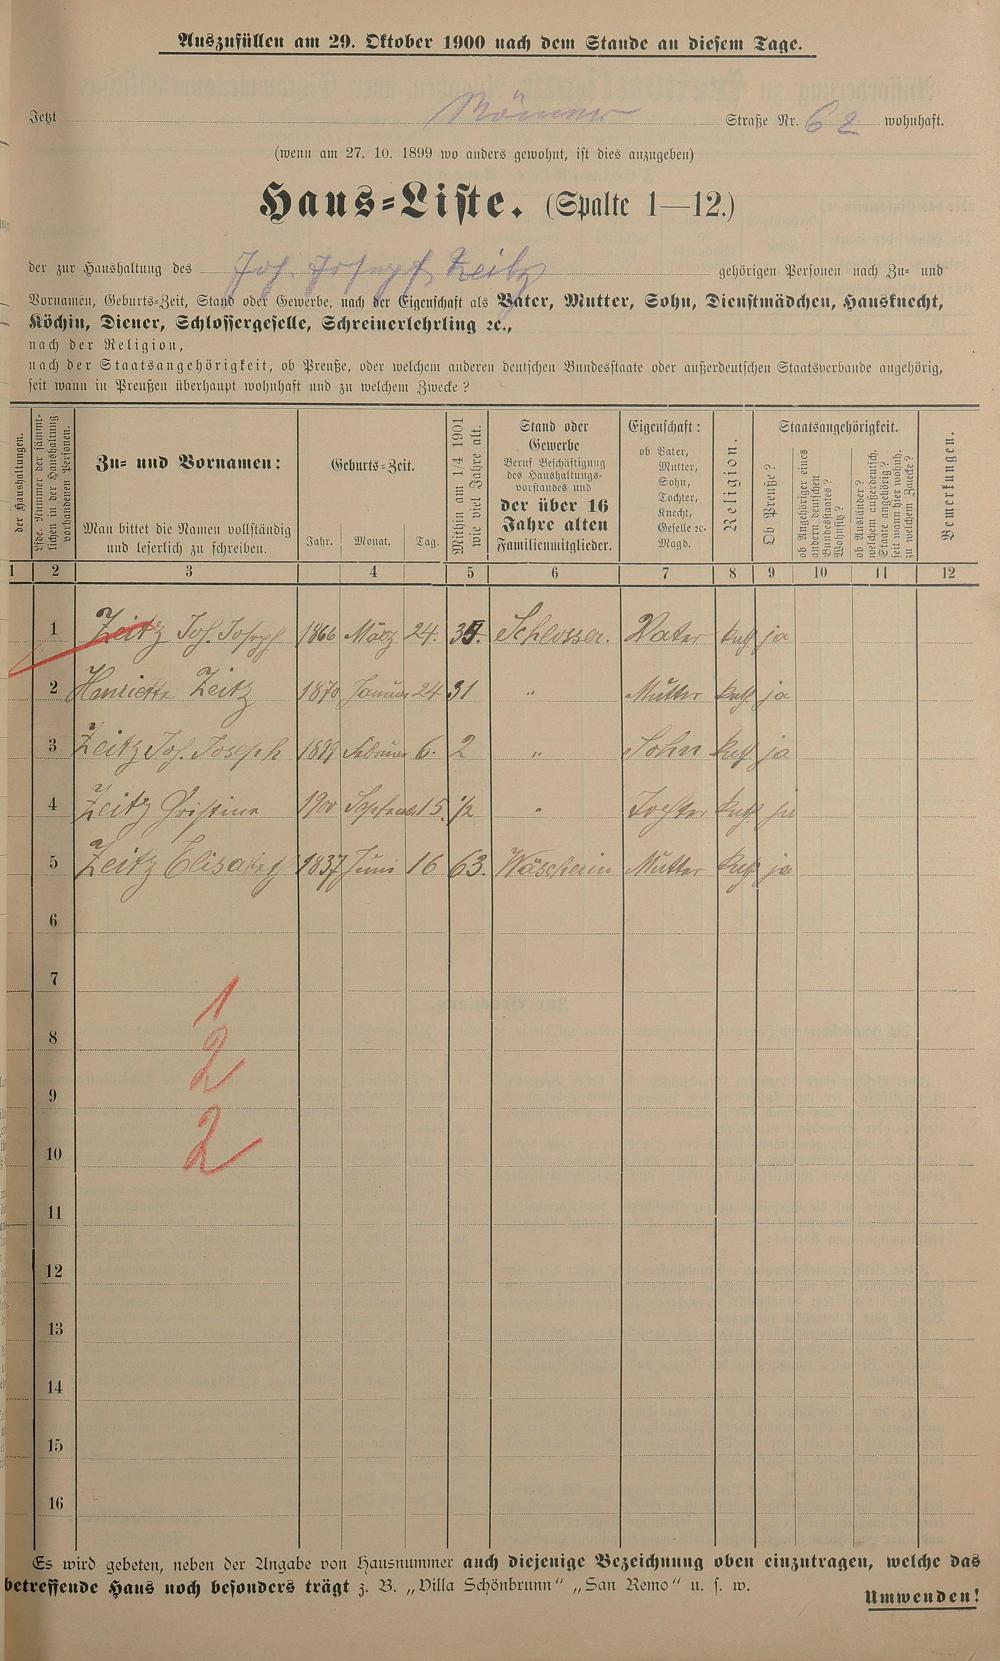 Auszufüllen am 29. Oktober 1900 nach dem Stande an diesem Tage.
Jetzt Römer Straße Nr. 62 wohnhaft.
(wenn am 27. 10. 1899 wo anders gewohnt, ist dies anzugeben)
Haus-Liste. (Spalte 1—12.)
der zur Haushaltung des Joh. Josepf Zeitz gehörigen Personen nach Zu- und
Vornamen, Geburts-Zeit, Stand oder Gewerbe, nach der Eigenschaft als Vater, Mutter, Sohn, Dienstmädchen, Hausknecht,
Köchin, Diener, Schlossergeselle, Schreinerlehrling ꝛc.,
nach der Religion,
nach der Staatsangehörigkeit, ob Preuße, oder welchem anderen deutschen Bundesstaate oder außerdeutschen Staatsverbande angehörig,
seit wann in Preußen überhaupt wohnhaft und zu welchem Zwecke?
der Haushaltungen.
Lfde. Nummer der sämmt-
lichen in der Haushaltung
vorhandenen Personen.
Zu- und Vornamen:
Man bittet die Namen vollständig
und leserlich zu schreiben.
Geburts-Zeit.
Jahr. Monat. Tag.
Mithin am 1/4 1901
wie viel Jahre alt.
Stand oder
Gewerbe
Beruf Beschäftigung
des Haushaltungs-
vorstandes und
der über 16
Jahre alten
Familienmitglieder.
Eigenschaft:
ob Vater,
Mutter,
Sohn,
Tochter,
Knecht,
Geselle ꝛc.
Magd.
Religion.
Staatsangehörigkeit.
Ob Preuße?
ob Angehöriger eines
andern deutschen
Bundesstaates?
Wohnsitz?
ob Ausländer?
welchem außerdeutsch.
Staate angehörig?
seit wann hier wohnh.
zu welchem Zwecke?
Bemerkungen.
1 2 3 4 5 6 7 8 9 10 11 12
1 Zeitz Joh. Josepf 1866 März 24. Schlosser. Vater kath ja
2 Henriette Zeitz 1870 Januar 24 31 " Mutter kath. ja
3 Zeitz Joh. Joseph Februar 6. 2 " Sohn kath ja
4 Zeitz Cristina 1900 September 15. 1/2 " Tochter kath. ja
5 Zeitz Elisabeth 1837 Juni 16 63. Wäscherin Mutter kath ja
6
7
1
8
2
9
10
2
11
12
13
14
15
16
Es wird gebeten, neben der Angabe von Hausnummer auch diejenige Bezeichnung oben einzutragen, welche das
betreffende Haus noch besonders trägt z. B. „Villa Schönbrunn" „San Remo" u. s. w.
Umwenden!